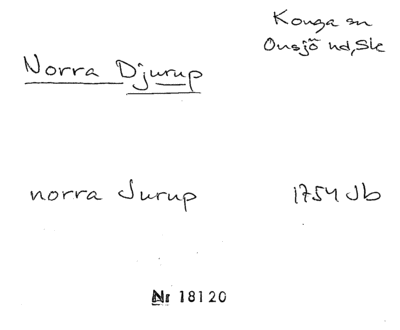 Konga sn
Onsjö hd, Sk
Norra Djurup
norra Jurup 1754 Jb
Nr 18120